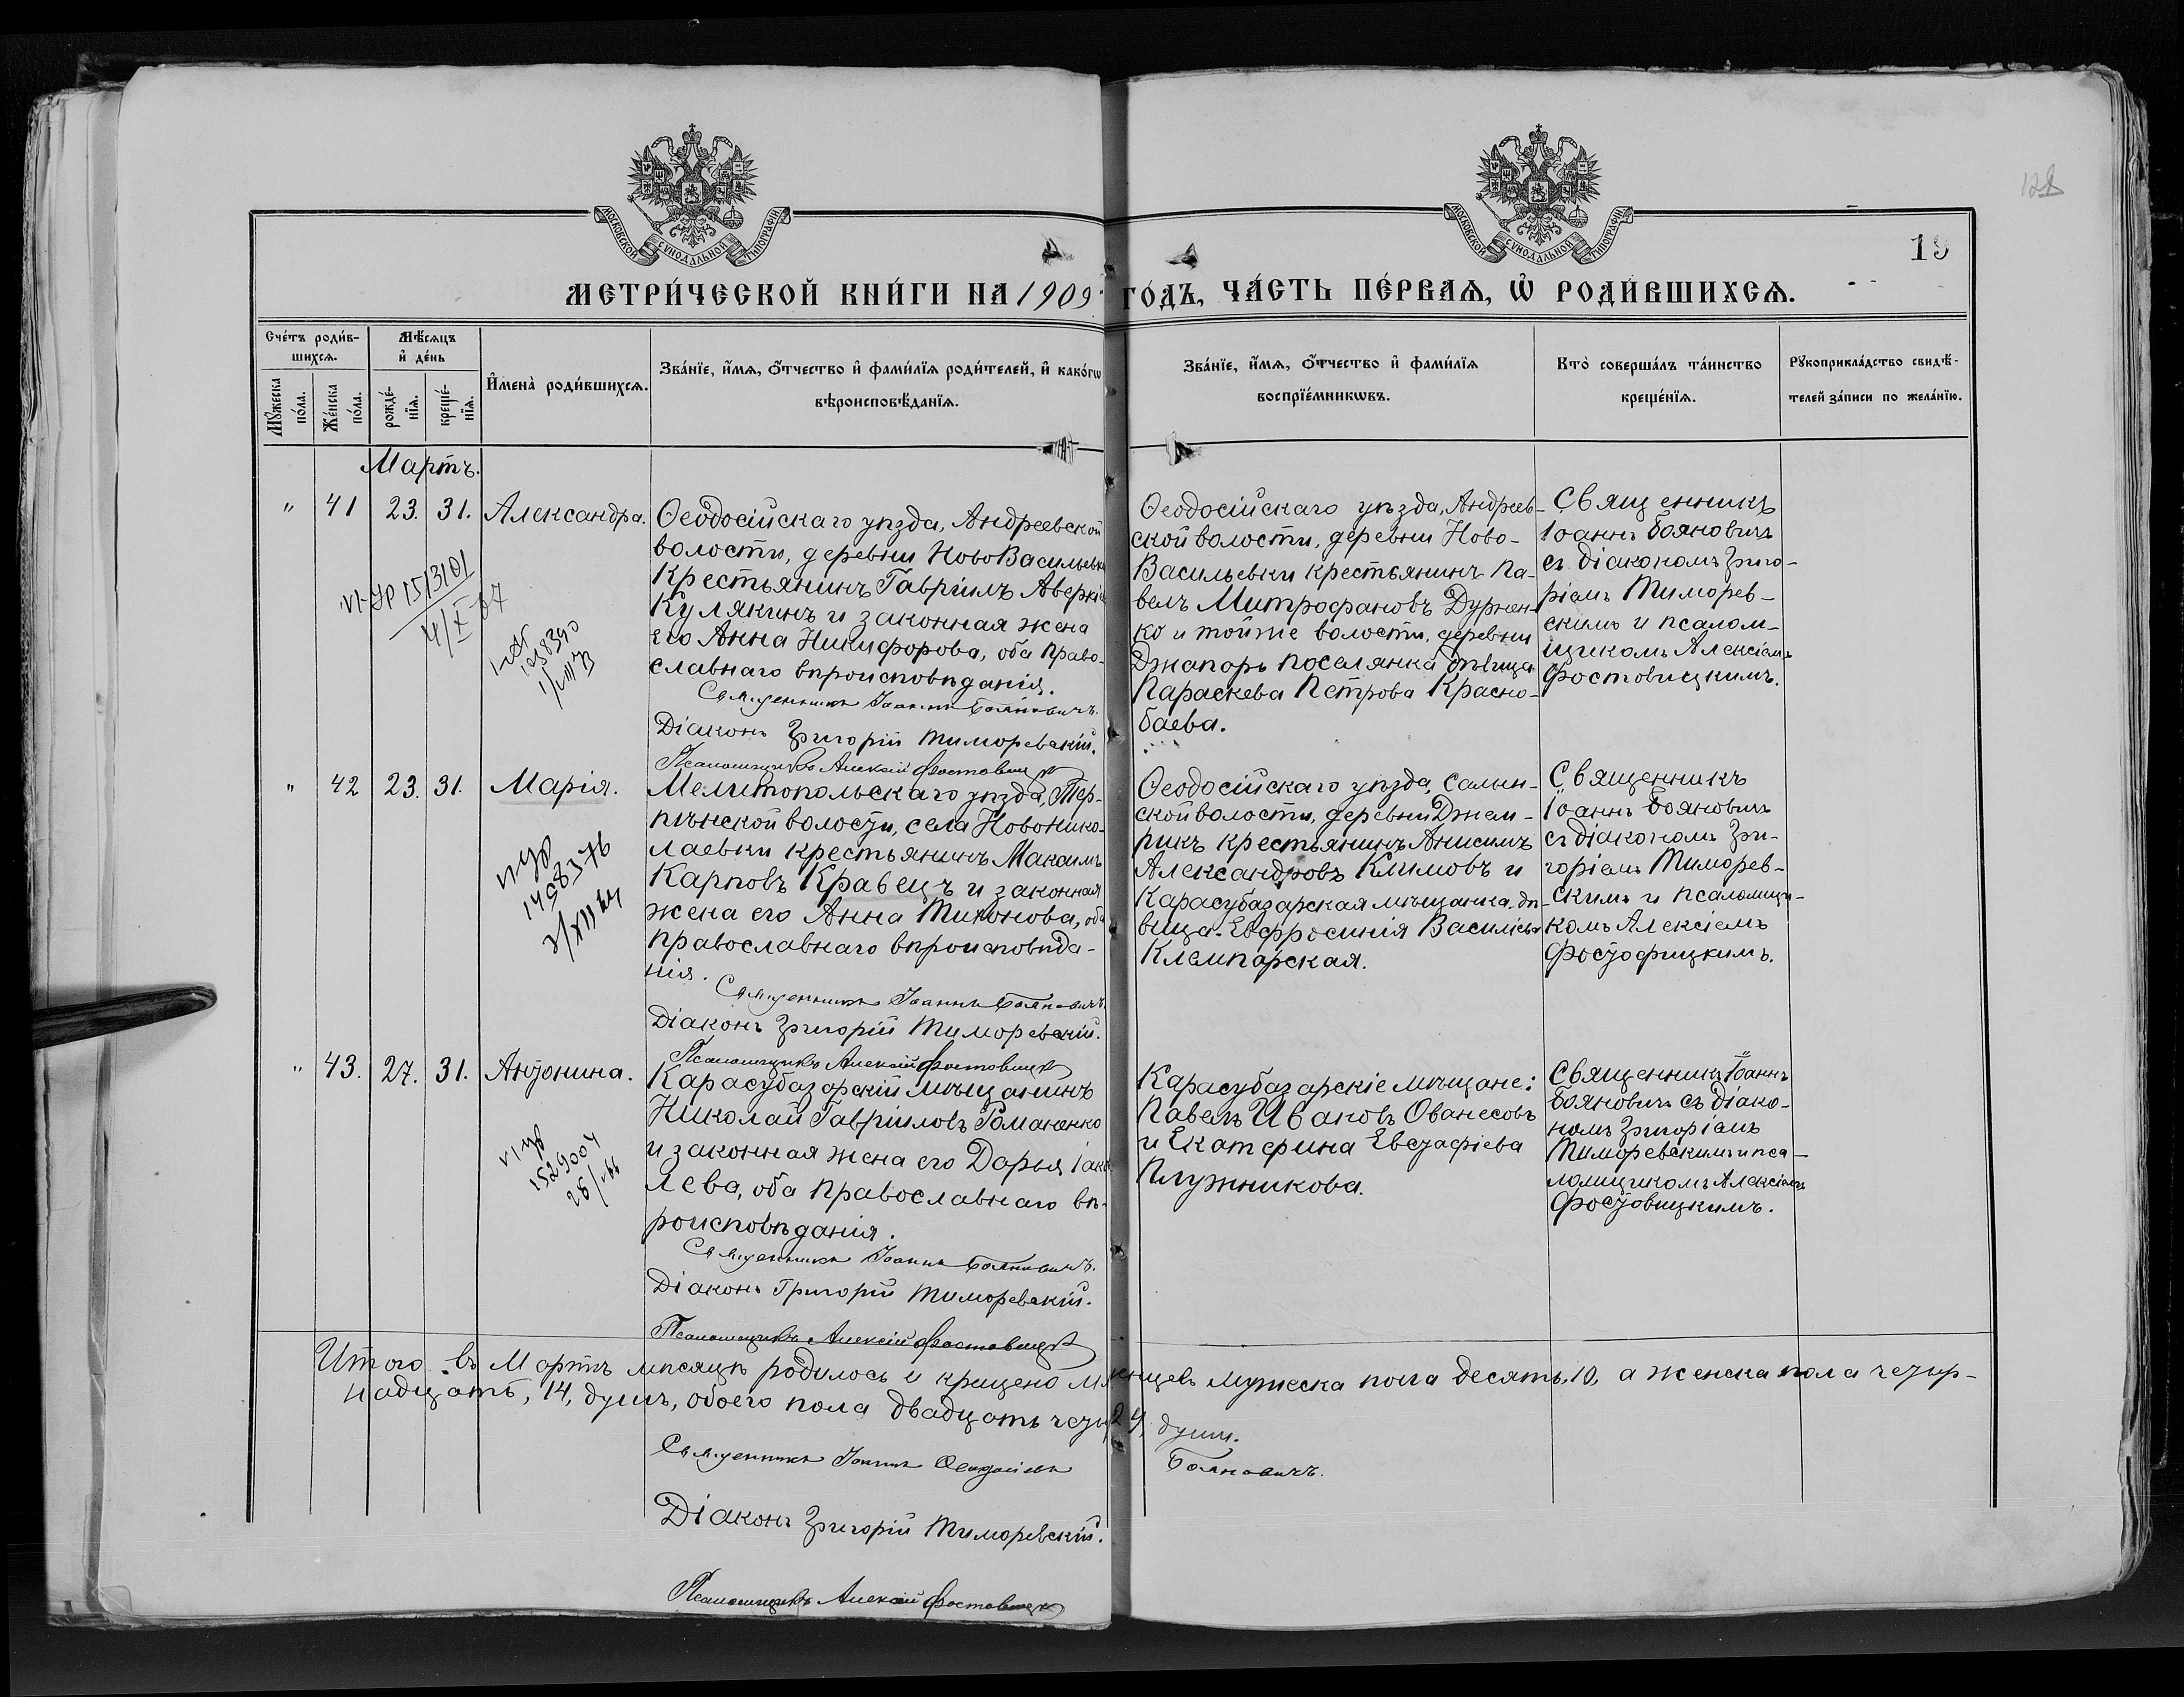 МОСКОВСКОЙ СѴНОДАЛЬНОЙ ТИПОГРАФІИ
МОСКОВСКОЙ СѴНОДАЛЬНОЙ ТИПОГРАФІИ
19
МЕТРИ́ЧЕСКОЙ КНИ́ГИ НА 1909 ГО́ДЪ, ЧА́СТЬ ПЕ́РВАЯ, Ѡ҆ РОДИ́ВШИХСЯ.
Сче́тъ роди́в-
шихся.
Мѣ́сяцъ
и҆ де́нь
Мꙋ́жеска
по́ла.
Же́нска
по́ла.
рожде́-
нїя.
креще́-
нїя.
И҆мена̀ роди́вшихся.
Зва́нїе, и҆́мя, ѻ҆́тчество и҆ фами́лїя роди́телей, и҆ како́гѡ
вѣроисповѣ́данїя.
Зва́нїе, и҆́мя, ѻ҆́тчество и҆ фами́лїя
воспрїе́мникѡвъ.
Кто̀ соверша́лъ та́инство
креще́нїя.
Рꙋкоприкла́дство свидѣ́-
телей за́писи по жела́нїю.
Мартъ.
" 41 23. 31. Александра.
Ѳеодосійскаго уѣзда, Андреевской
волости, деревни НовоВасильевки
Крестьянинъ Гавріилъ Аверкіев
Кулякинъ и законная жена
его Анна Никифорова, оба право-
славнаго вѣроисповѣданія.
Священникъ Іоаннъ Бояновичъ.
Діаконъ Григорій Тиморевскій.
Псаломщикъ Алексій Фостовицкій
Ѳеодосійскаго уѣзда, Андреев-
ской волости, деревни Ново-
Васильевки крестьянинъ Па-
велъ Митрофановъ Дужен-
ко и тойже волости, деревни
Джапаръ поселянка дѣвица
Параскева Петрова Красно-
баева.
Священникъ
Іоаннъ Бояновичъ
съ діакономъ Григо-
ріемъ Тиморев-
скимъ и псалом-
щикомъ Алексіемъ
Фостовицкимъ.
VI-УР 1513101
4/X-67
" 42 23. 31. Марія.
Мелитопольскаго уѣзда, Тер-
пѣнской волости, села НовоНико-
лаевки крестьянинъ Максимъ
Карповъ Кравецъ и законная
жена его Анна Тихонова, оба
православнаго вѣроисповѣда-
нія.
Священникъ Іоаннъ Бояновичъ
Діаконъ Григорій Тиморевскій.
Псаломщикъ Алексій Фостовицкій
Ѳеодосійскаго уѣзда, Салын-
ской волости, деревни Джай-
рикъ крестьянинъ Анисимъ
Александровъ Климовъ и
Карасубазарская мѣщанка дѣ-
вица Евфросинія Васильева
Клемпарская.
Священникъ
Іоаннъ Бояновичъ
съ діакономъ Гри-
горіемъ Тиморев-
скимъ и псаломщи-
комъ Алексіемъ
Фостофицкимъ.
" 43. 27. 31. Антонина.
Карасубазарскій мѣщанинъ
Николай Гавріиловъ Романенко
и законная жена его Дарья Іаков
лева, оба православнаго вѣ-
роисповѣданія.
Священникъ Іоаннъ Бояновичъ.
Діаконъ Григорій Тиморевскій.
Псаломщикъ Алексій Фостовицкій
Карасубазарскіе мѣщане:
Павелъ Ивановъ Ованесовъ
и Екатерина Евстафіева
Плужникова.
Священникъ Іоаннъ
Бояновичъ съ діако-
номъ Григоріемъ
Тиморевскимъ и пса-
ломщикомъ Алексіемъ
Фостовицкимъ.
Итого въ Мартѣ мѣсяцѣ родилось и крещено младенцевъ мужеска пола десять, 10, а женска пола четыр-
надцать, 14, душъ, обоего пола двадцать четыр 24, души.
Священникъ Іоаннъ Бояновичъ.
Діаконъ Григорій Тиморевскій.
Псаломщикъ Алексій Фостовицкій